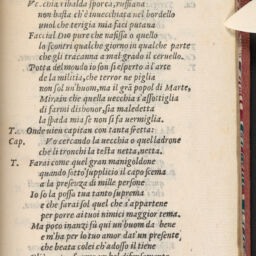 Ve. chia ribalda sporca, ruffiana:
non basta ch'è inuecchiata nel bordello
unol che terigia mia faci putana
Faccial Dio pure che nasissa o quello
lo scontri qualche giorno in qualche parte
che gli tracanna a mal grado il ceruello.
Potta del mondo io son sì esperto al'arte
de la militia, che terror ne piglia
non sol un huom, ma il grã popol di Marte,
Mirasin che quella uechia s'assottiglia
di farmi dishonor, sia maledetta
la spada mia se non si fa uermiglia.
T. Onde uien capitan con tanta fretta:
Cap. Vo cercando la uecchia o quel ladrone
che li tronchi la testa netta, netta.
T. Farai come quel gran manigoldone
quando sotto'l supplicio il capo scema
a la presenza di mille persone
Io so la possa tua tanto suprema
e che farai sol quel che s'appartene
per porre ai tuoi nimici maggior tema.
Ma poco inanzi fù qui un'huom da bene
e m'ha per lo tuo amor dat'un presente,
che beata colei ch'adosso il tiene